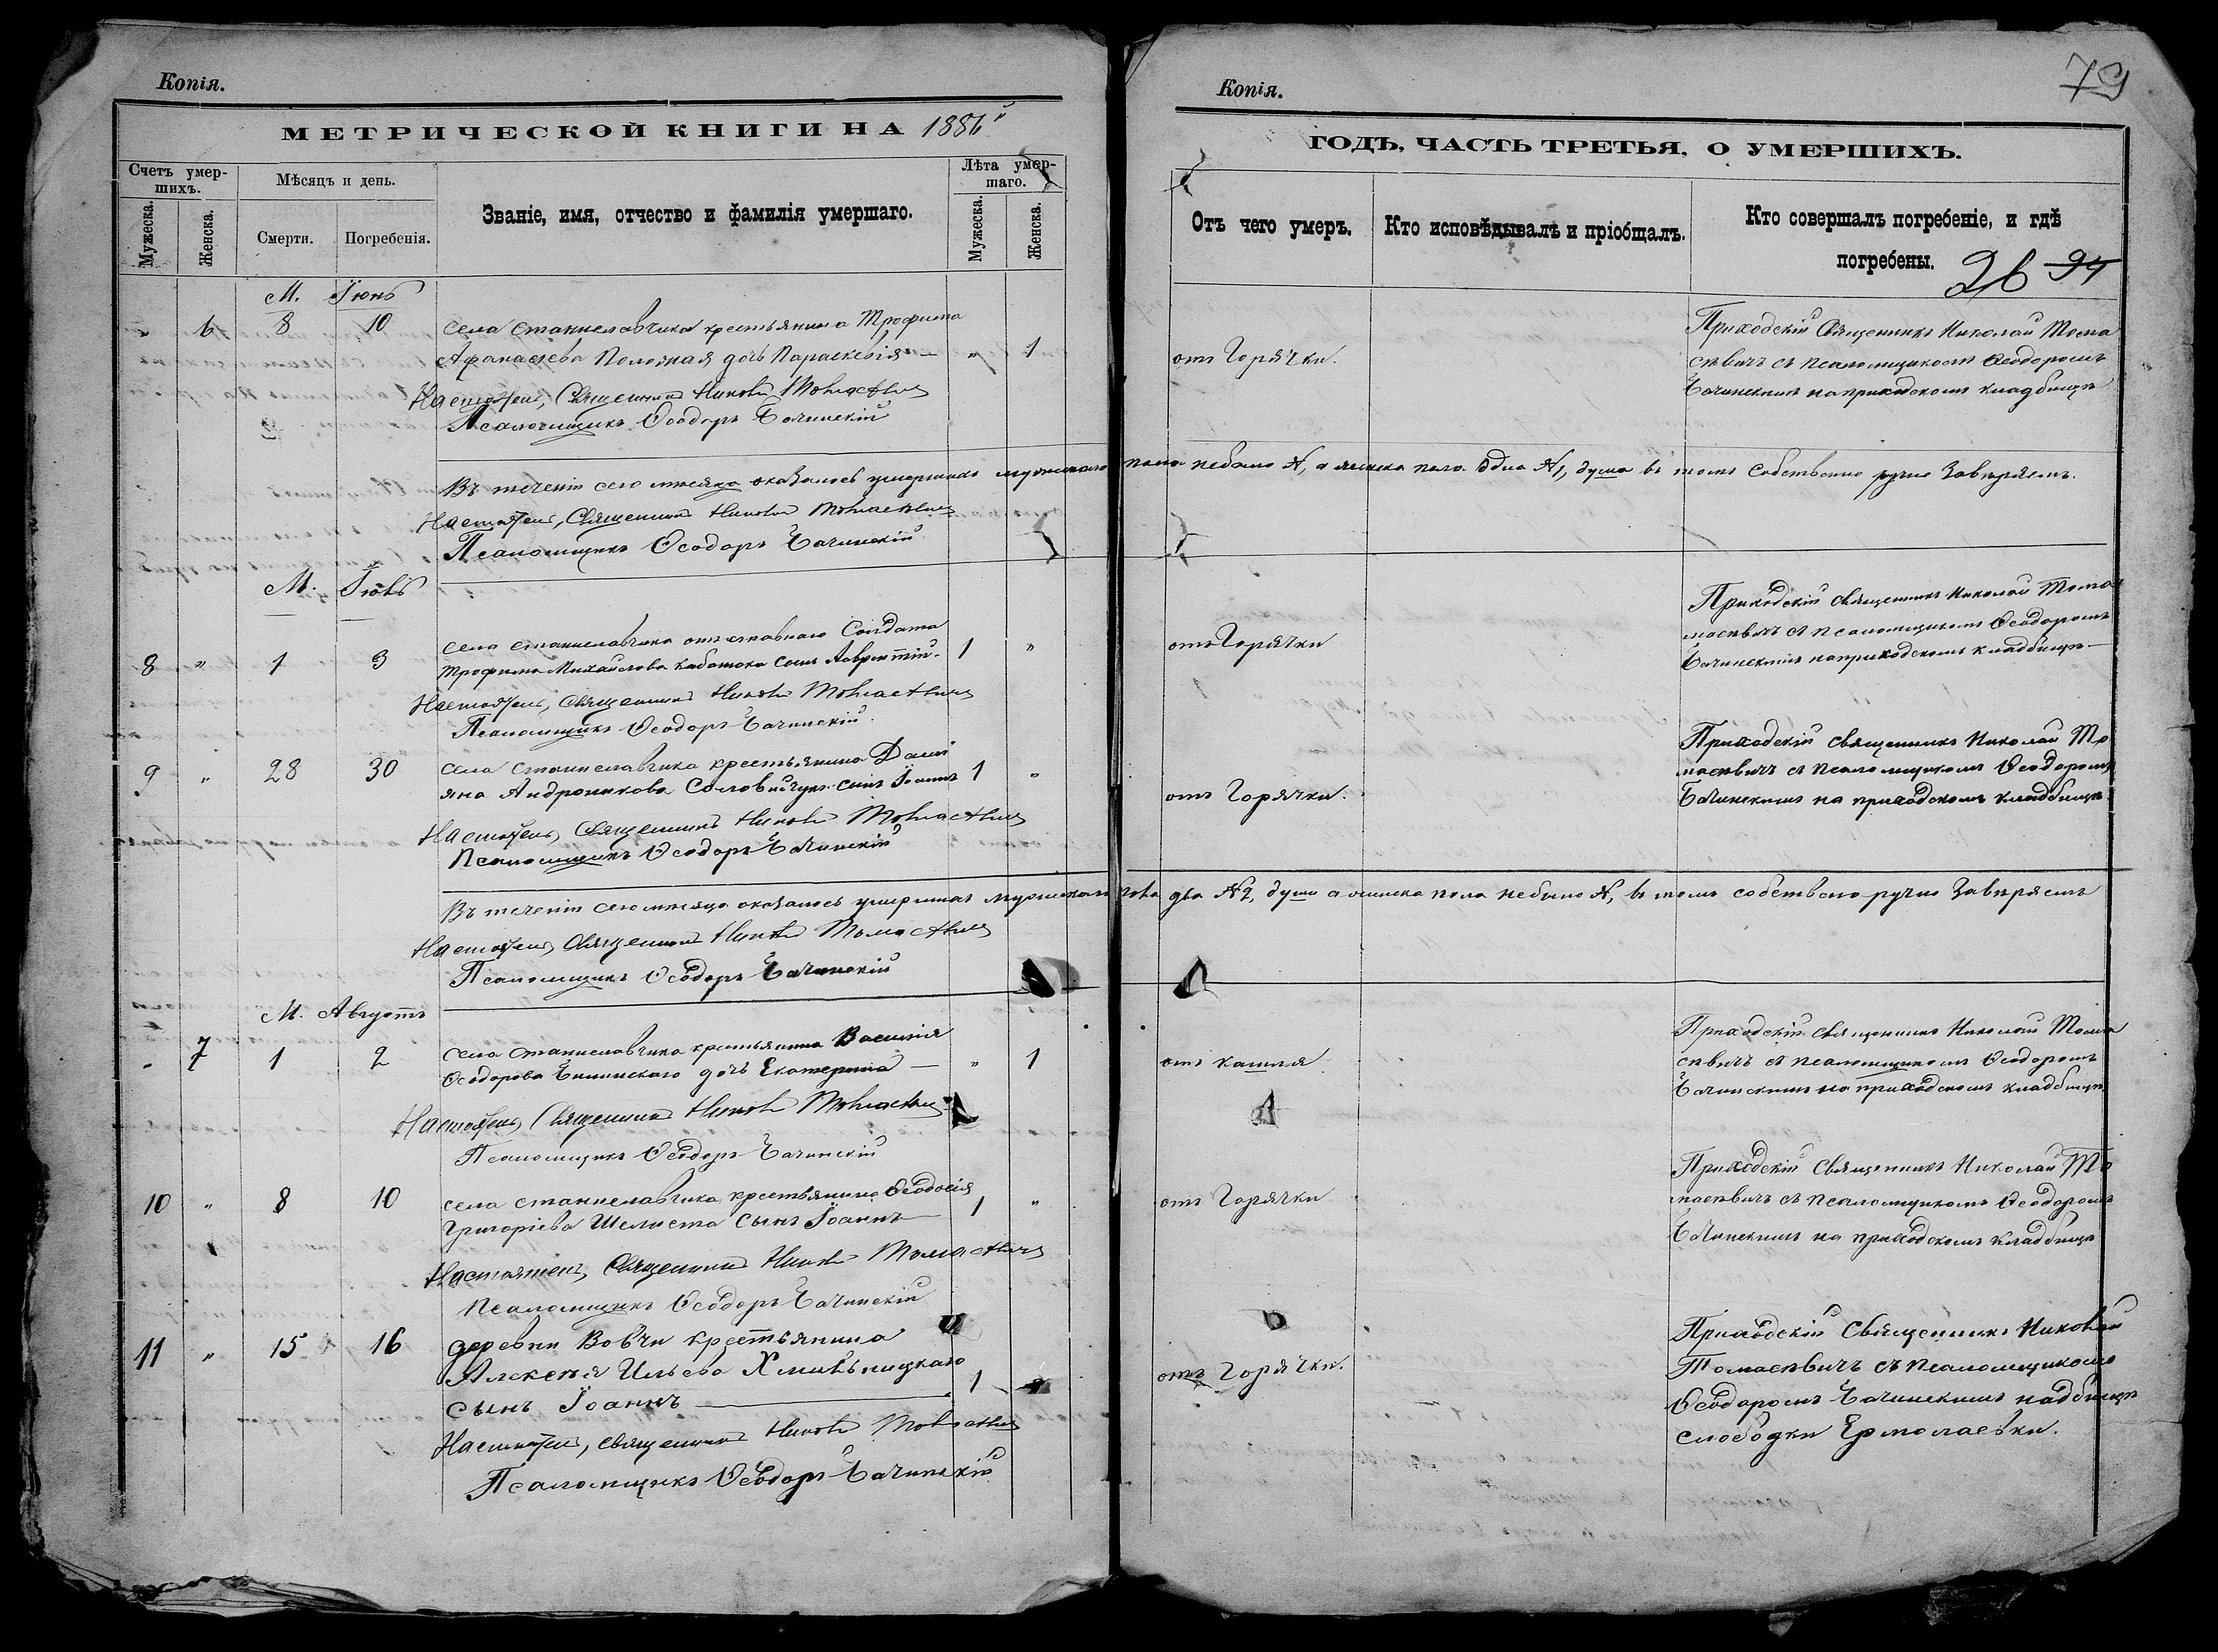 Копія.
МЕТРИЧЕСКОЙ КНИГИ НА 1886й
Счетъ умер-
шихъ.
Мѣсяцъ и день.
Званіе, имя, отчество и фамилія умершаго.
Лѣта умер-
шаго.
Мужеска.
Женска.
Смерти.
Погребенія.
Мужеска.
Женска.
М. Іюнь
" 6 8 10 села Станиславчика крестьянина Трофима
Афанасьева дочь Параскевія — " 1
Настоятель, Священникъ
Псаломщикъ Ѳеодоръ Бачинскій
Въ теченіи сего мѣсяца оказалось умершихъ мужескаго пола небыло №, а женска пола одна №1, душа въ томъ собственно ручно завѣряемъ.
Настоятель, Священникъ
Псаломщикъ Ѳеодоръ Бачинскій
М. Іюль
8 " 1 3 села Станиславчика отставнаго Солдата
Трофима Михайлова сынъ 1 "
Настоятель, Священникъ
Псаломщикъ Ѳеодоръ Бачинскій
9 " 28 30 села Станиславчика крестьянина Дамі
яна Андроникова сынъ Іоаннъ 1 "
Настоятель, Священникъ
Псаломщикъ Ѳеодоръ Бачинскій
Въ теченіи сего мѣсяца оказалось умершихъ мужескаго пола два №2, души а женска пола небыло №, въ томъ собственно ручно завѣряемъ
Настоятель, Священникъ
Псаломщикъ Ѳеодоръ Бачинскій
М. Августъ
" 7 1 2 села Станиславчика крестьянина Василія
Ѳеодорова дочь Екатерина — " 1
Настоятель, Священникъ
Псаломщикъ Ѳеодоръ Бачинскій
10 " 8 10 села Станиславчика крестьянина Ѳеодосія
Григоріева Шелиста сынъ Іоаннъ — 1 "
Настоятель, Священникъ
Псаломщикъ Ѳеодоръ Бачинскій
11 " 15 16 деревни Вовчи крестьянина
Алексѣя Ильева Хмѣльницкаго
сынъ Іоаннъ — 1 "
Настоятель, священникъ
Псаломщикъ Ѳеодоръ Бачинскій
Копія.
79
ГОДЪ, ЧАСТЬ ТРЕТЬЯ, О УМЕРШИХЪ.
Отъ чего умеръ.
Кто исповѣдывалъ и пріобщалъ.
Кто совершалъ погребеніе, и гдѣ
погребены.
26
отъ Горячки.
Приходскій Священникъ Николай Тома
сѣвичъ съ псаломщикомъ Ѳеодоромъ
Бачинскимъ на приходскомъ кладбищѣ
отъ Горячки
Приходскій священникъ Николай Тома
масѣвичъ съ псаломщикомъ Ѳеодоромъ
Бачинскимъ на приходскомъ кладбищѣ —
отъ Горячки.
Приходскій священникъ Николай То
масѣвичъ съ псаломщикомъ Ѳеодоромъ
Бачинскимъ на приходскомъ кладбищѣ
отъ кашля
Приходскій священникъ Николай Тома
сѣвичъ съ псаломщикомъ Ѳеодоромъ
Бачинскимъ на приходскомъ кладбищѣ
отъ Горячки
Приходскій священникъ Николай То
масѣвичъ съ псаломщикомъ Ѳеодоромъ
Бачинскимъ на приходскомъ кладбищѣ
отъ Горячки.
Приходскій священникъ Николай
Томасѣвичъ съ псаломщикомъ
Ѳеодоромъ Бачинскимъ
слободки Ермолаевки.